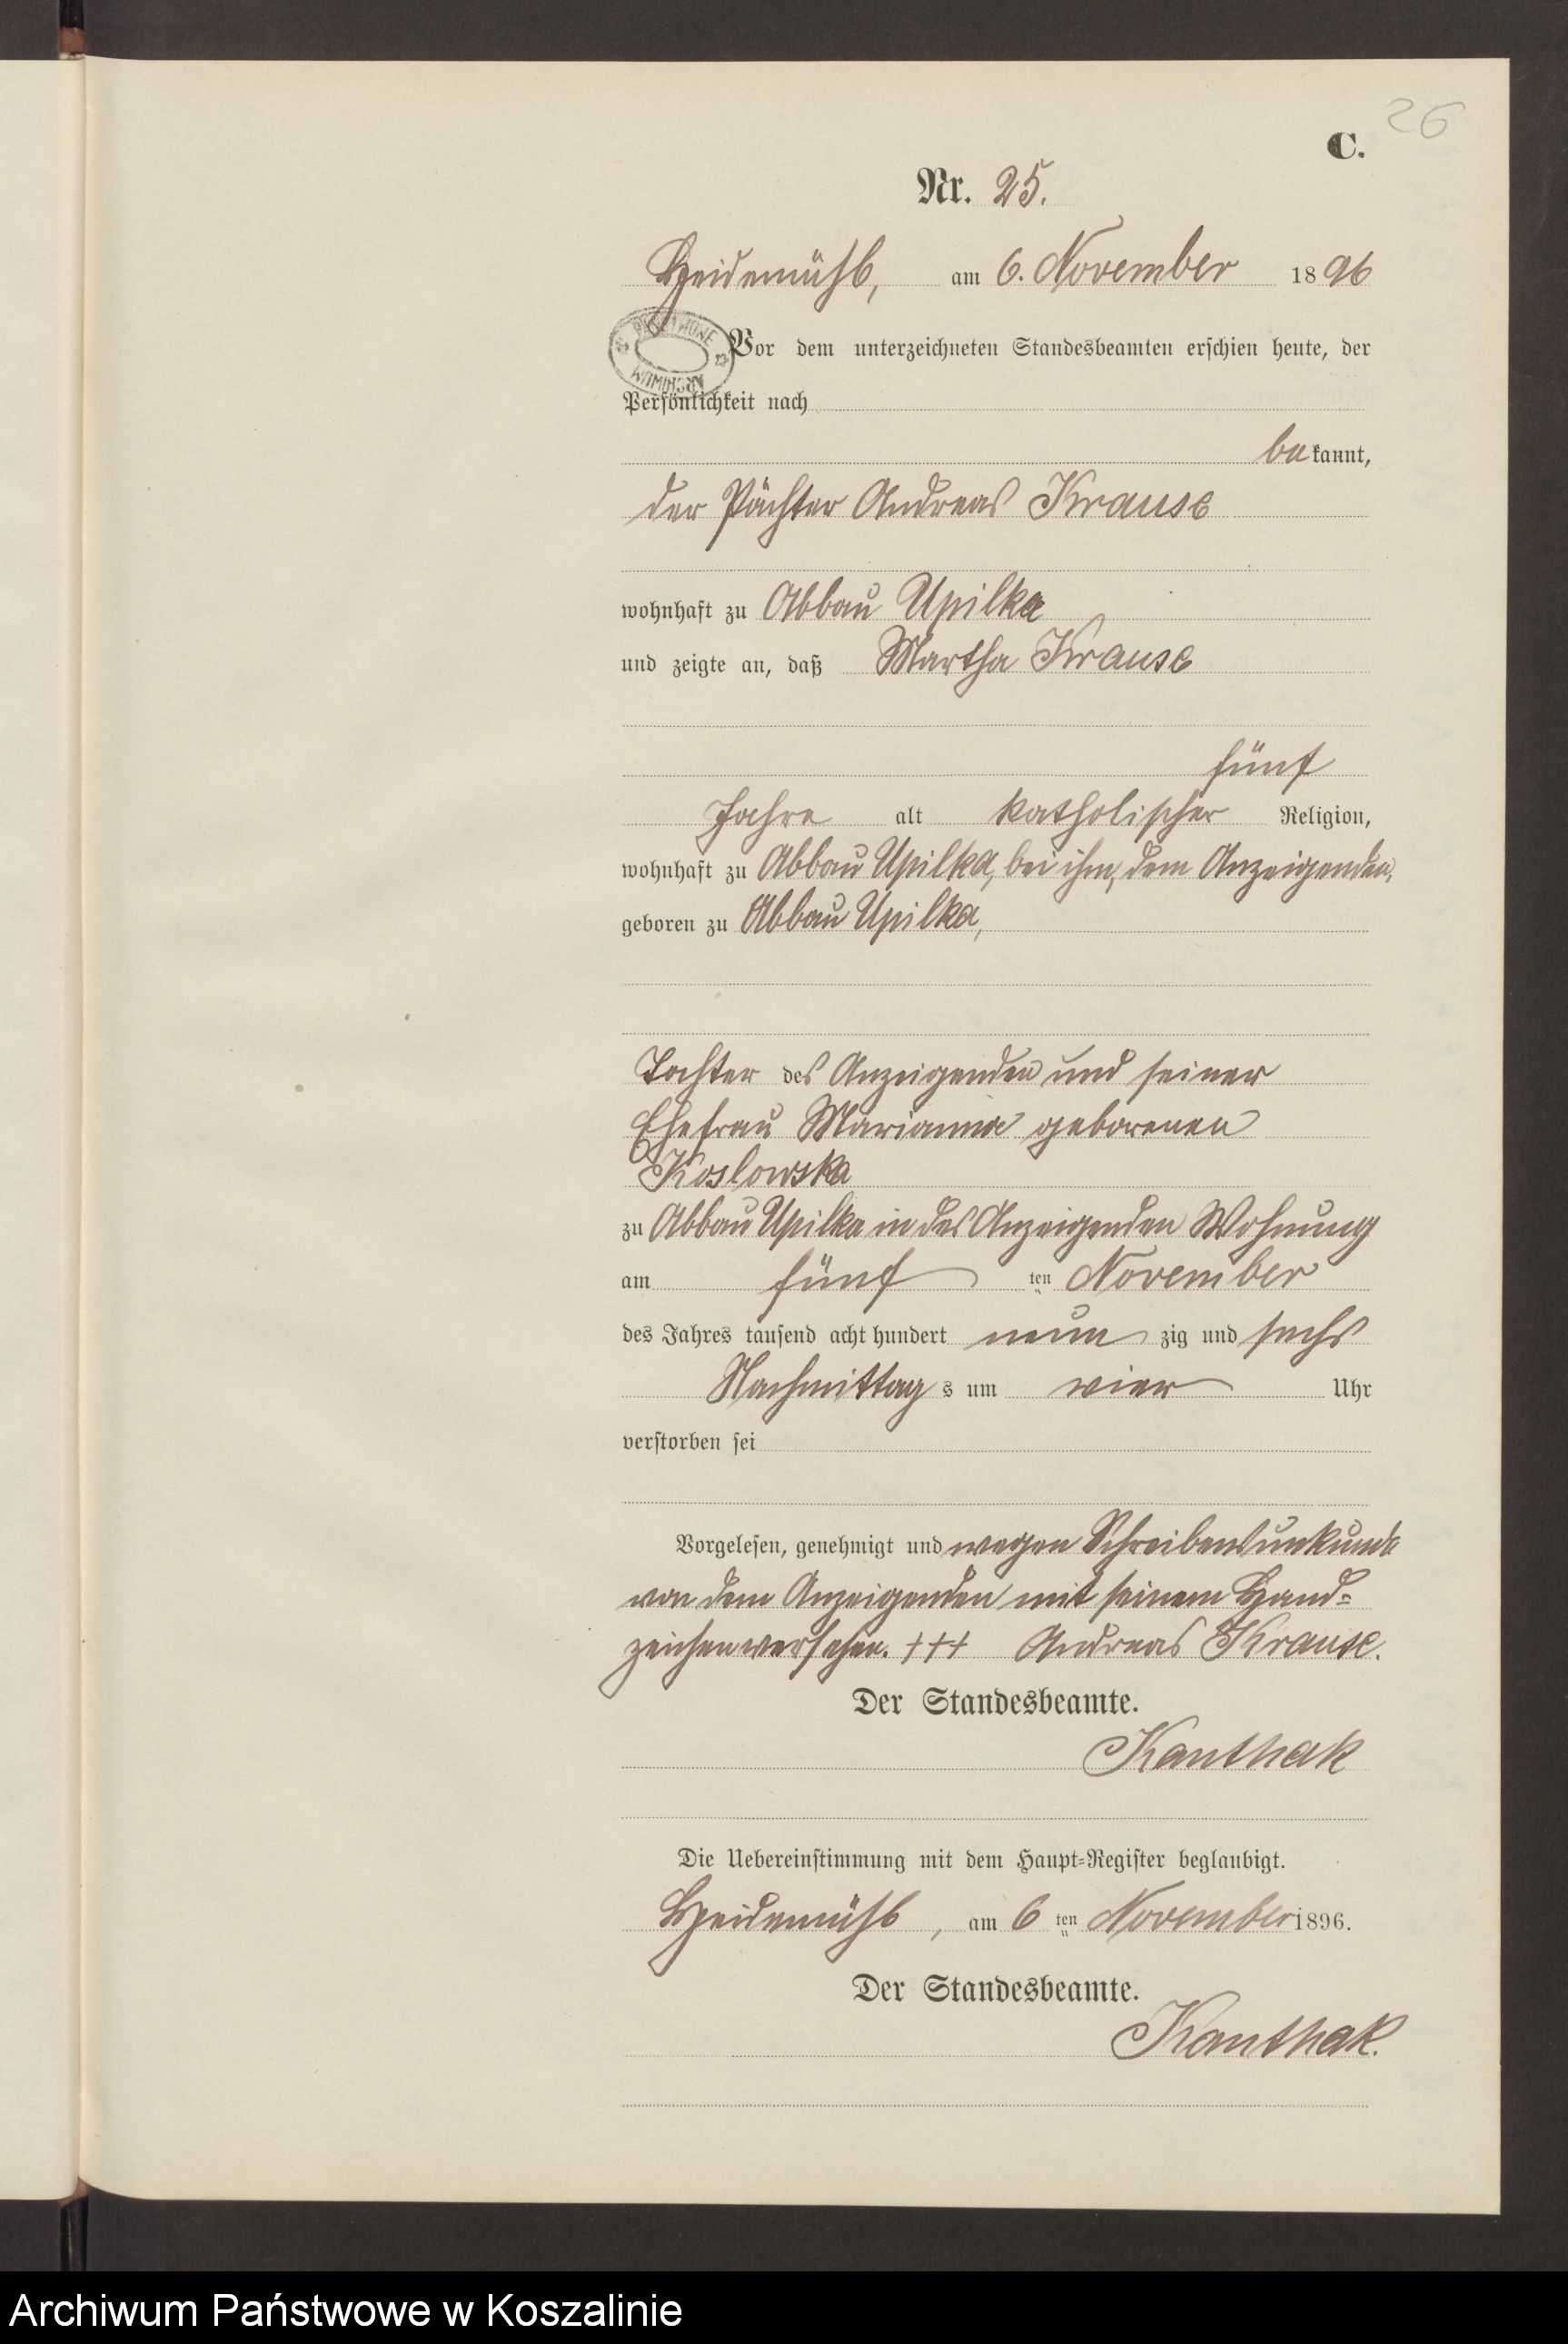 26
C.
Nr. 25.
Heidemühl, am 6. November 1896
Vor dem unterzeichneten Standesbeamten erschien heute, der
Persönlichkeit nach
bekannt,
der Pächter Andreas Krause
wohnhaft zu Abbau Upilka
und zeigte an, daß Martha Krause
fünf
Jahre alt katholischer Religion,
wohnhaft zu Abbau Upilka, bei ihm, dem Anzeigenden,
geboren zu Abbau Upilka,
Tochter des Anzeigenden und seiner
Ehefrau Marianna geborenen
Koslowska
zu Abbau Upilka in des Anzeigenden Wohnung
am fünf ten November
des Jahres tausend acht hundert neun zig und sechs
Nachmittag s um vier Uhr
verstorben sei
Vorgelesen, genehmigt und wegen Schreibensunkunde
von dem Anzeigenden mit seinem Hand-
zeichen versehen. +++ Andreas Krause.
Der Standesbeamte.
Kanthak
Die Uebereinstimmung mit dem Haupt-Register beglaubigt.
Heidemühl, am 6 ten November 1896.
Der Standesbeamte.
Kanthak.
Archiwum Państwowe w Koszalinie